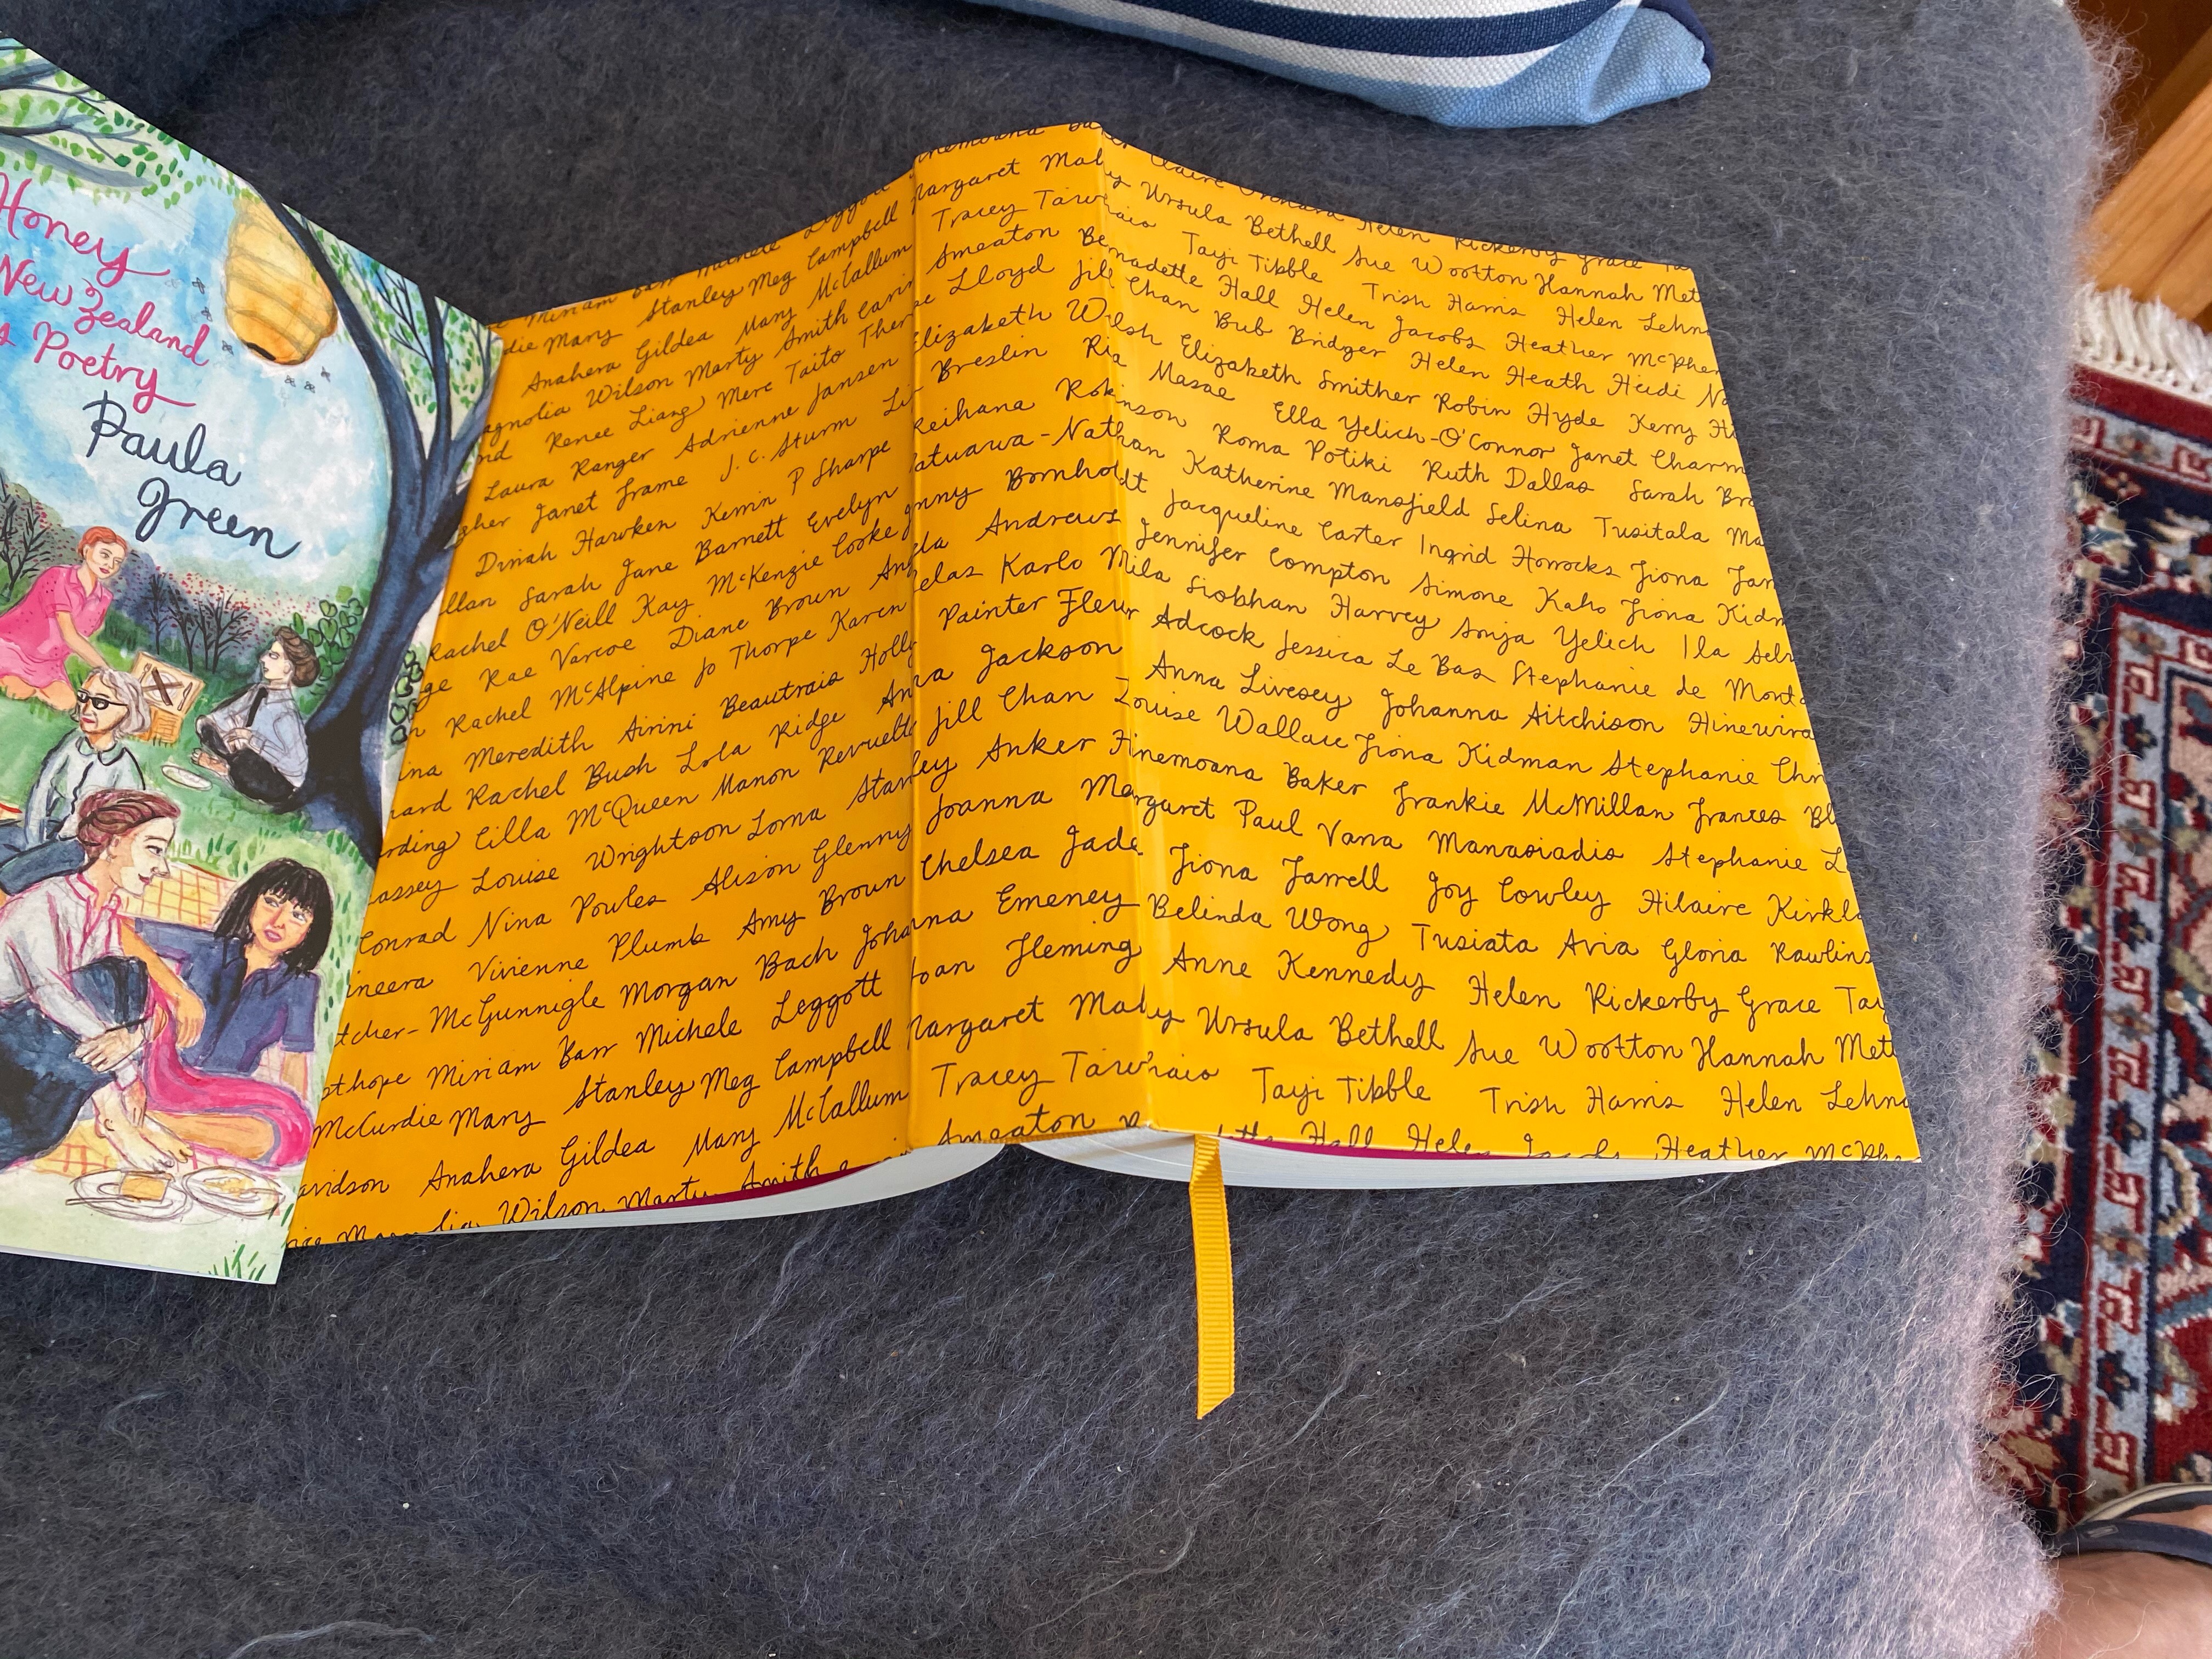 Honey
New Zealand
Poetry
Paula
Green
Miriam Barr Michele Leggott
die Mary Stanley Meg Campbell
Anahera Gildea Mary McCallum
agnolia Wilson Marty Smith
nd Renee Liang Mere Taito
Laura Ranger Adrienne Jansen
gher Janet Frame J.C. Sturm
Dinah Hawken Kerrin P Sharpe
llan Sarah Jane Barnett Evelyn
Rachel O'Neill Kay McKenzie Cooke
ge Rae Varcoe Diane Brown
n Rachel McAlpine Jo Thorpe Karen
ina Meredith Airini Beautrais Holly
hard Rachel Bush Lola Ridge
rding Cilla McQueen Manon Revuelta
assey Louise Wrightson Lorna
Conrad Nina Powles Alison Glenny
ineera Vivienne Plumb Amy Brown
tcher-McGunnigle Morgan Bach
pthope Miriam Barr Michele Leggott
McCurdie Mary Stanley Meg Campbell
avidson Anahera Gildea Mary McCallum
Wilson Marty Smith
inemoana
Margaret Mahy Ursula Bethell Sue Wootton Hannah Mett
Tracey Tawhiao Tayi Tibble Trish Harris Helen Lehnd
Smeaton Bernadette Hall Helen Jacobs Heather McPher
Lloyd Jill Chan Bub Bridger Helen Heath Heidi No
Elizabeth Welsh Elizabeth Smither Robin Hyde Kerry Hi
Breslin Ria Masae Ella Yelich-O'Connor Janet Charm
Reihana Robinson Roma Potiki Ruth Dallas Sarah Bro
atuawa-Nathan Katherine Mansfield Selina Tusitala Ma
enny Bornholdt Jacqueline Carter Ingrid Horrocks Fiona Far
Angela Andrews Jennifer Compton Simone Kaho Fiona Kidm
elas Karlo Mila Siobhan Harvey Sonja Yelich Ila Selw
Painter Fleur Adcock Jessica Le Bas Stephanie de Monta
Anna Jackson Anna Livesey Johanna Aitchison Hinewira
Jill Chan Louise Wallace Fiona Kidman Stephanie Chri
Stanley Anker Hinemoana Baker Frankie McMillan Frances Bl
Joanna Margaret Paul Vana Manasiadis Stephanie L
Chelsea Jade Fiona Farrell Joy Cowley Hilaire Kirkla
Johanna Emeney Belinda Wong Tusiata Avia Gloria Rawlins
Joan Fleming Anne Kennedy Helen Rickerby Grace Tay
Margaret Mahy Ursula Bethell Sue Wootton Hannah Mett
Tracey Tawhiao Tayi Tibble Trish Harris Helen Lehnd
Smeaton Hall Helen Jacobs Heather McPhe